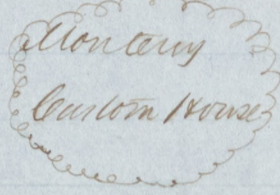 Monterey
Custom House